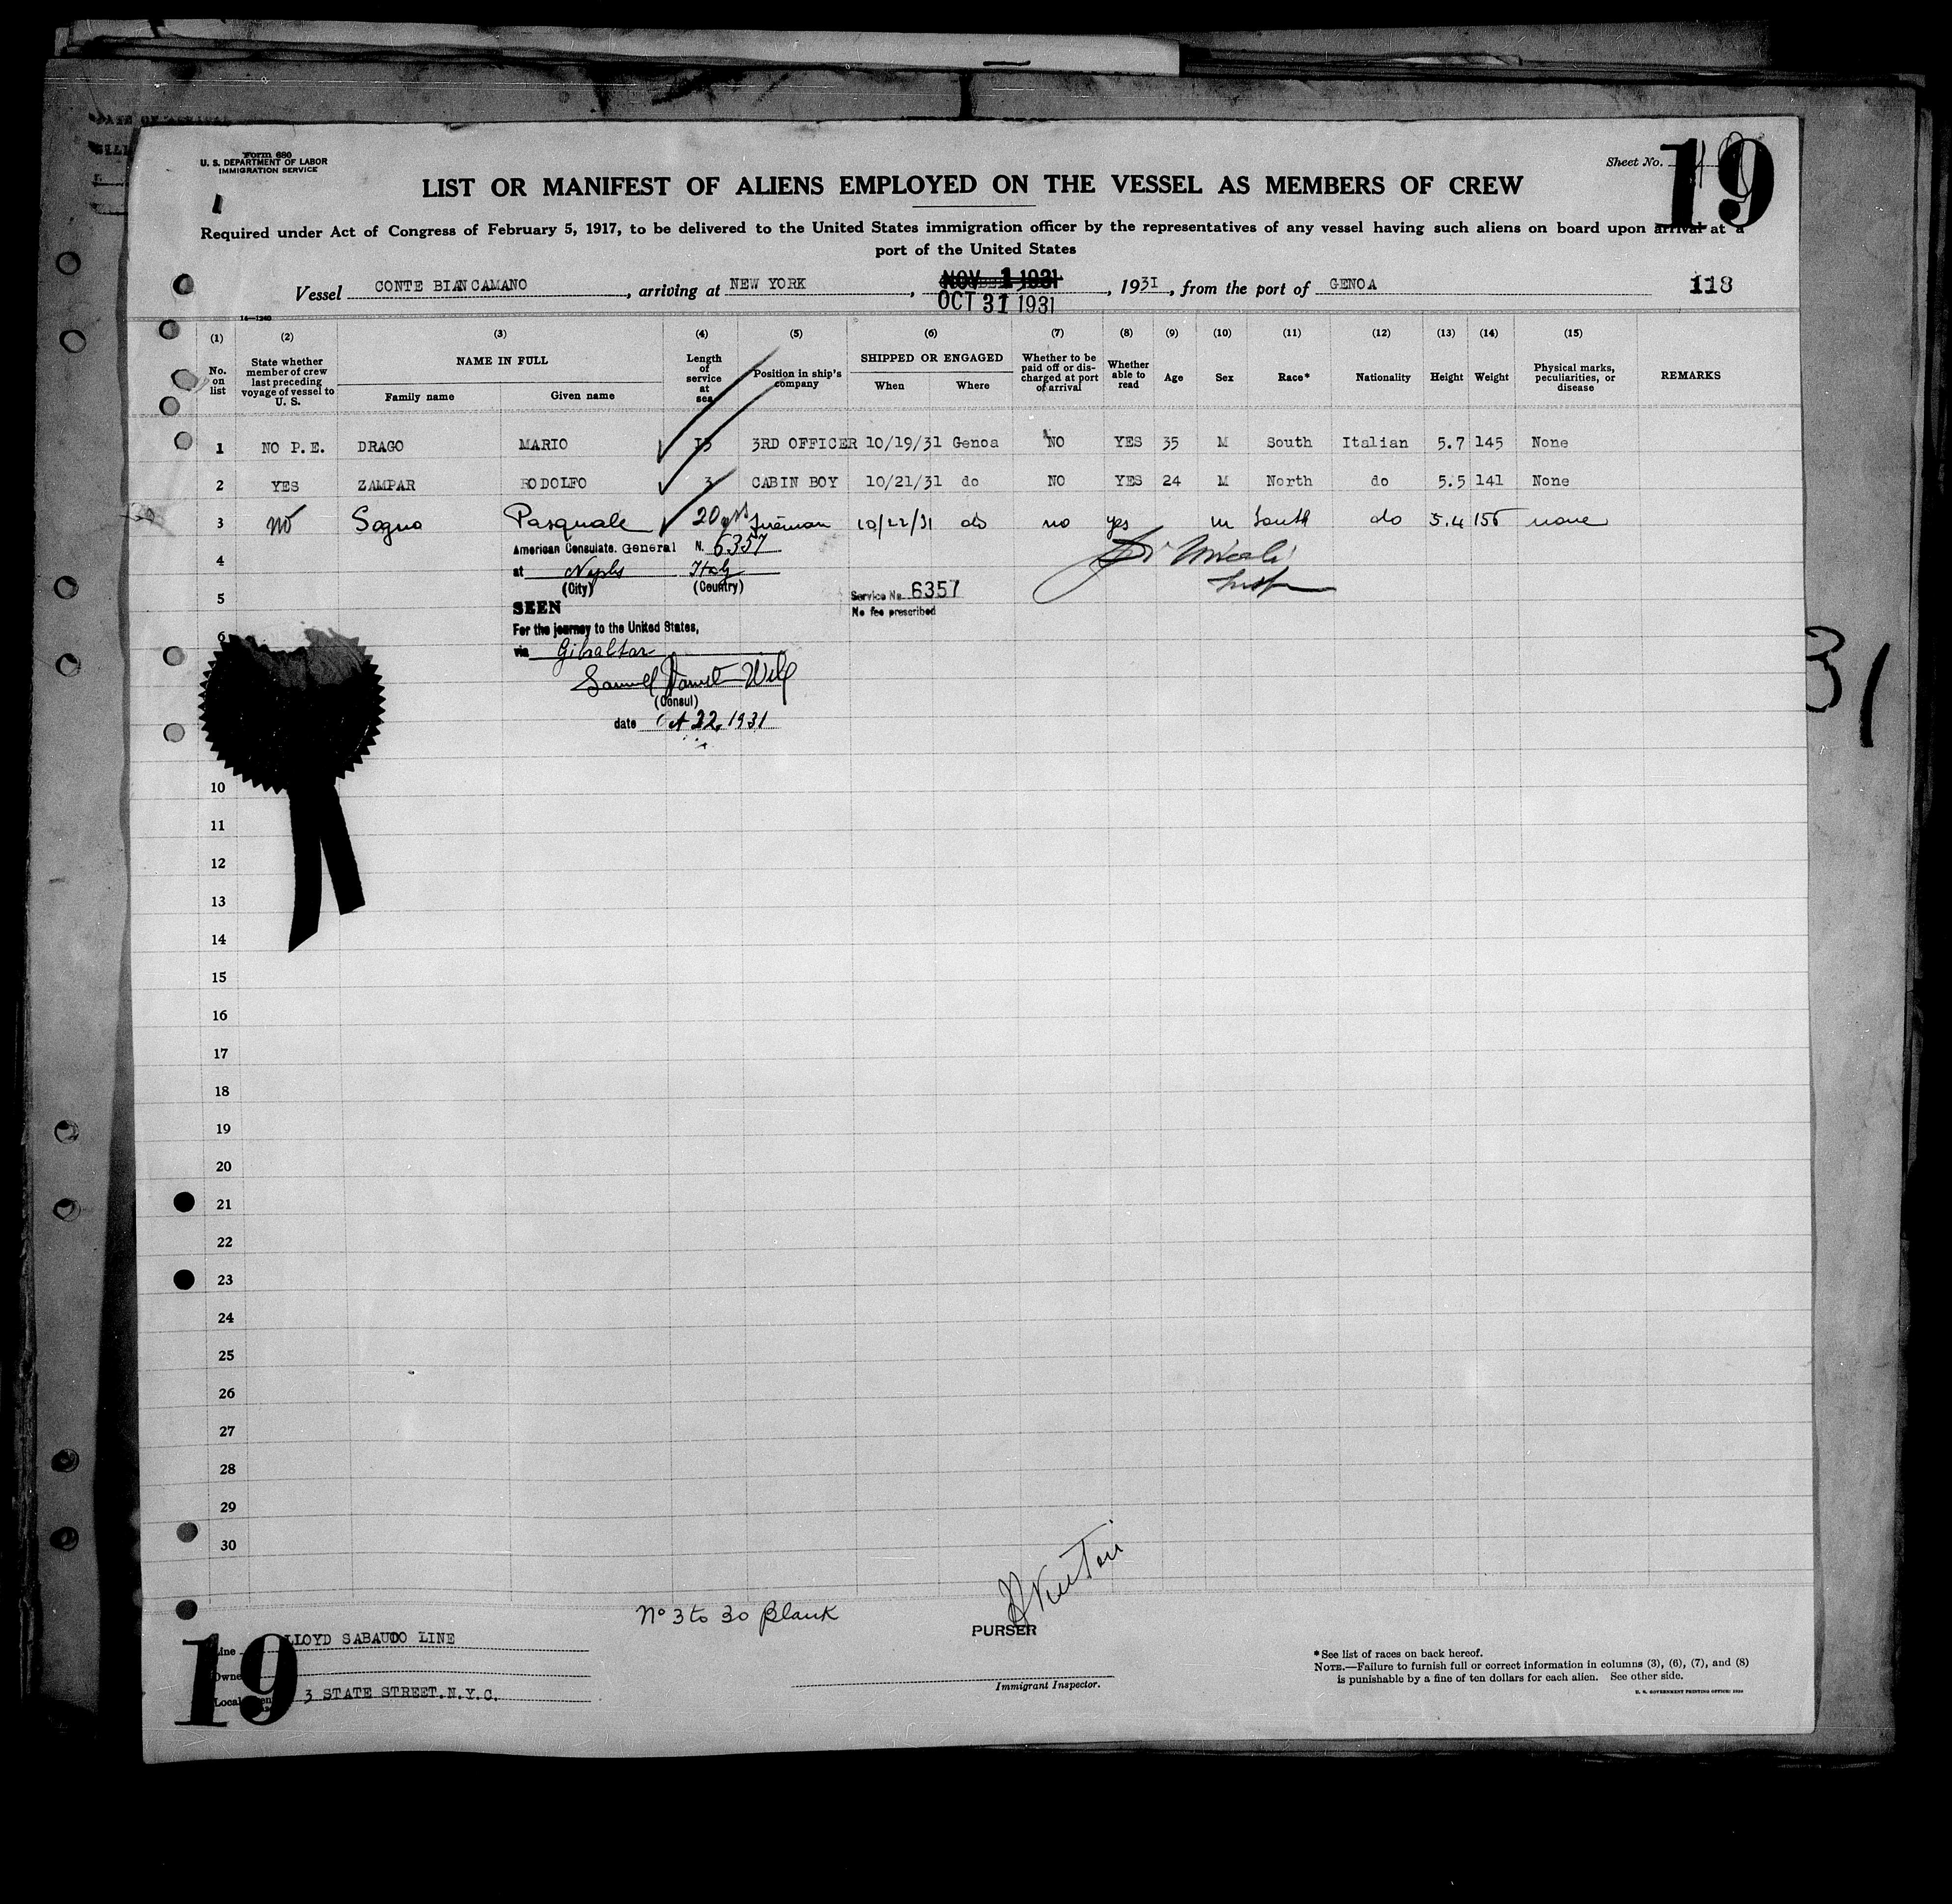 Form 680
U. S. DEPARTMENT OF LABOR
IMMIGRATION SERVICE
Sheet No.
19
LIST OR MANIFEST OF ALIENS EMPLOYED ON THE VESSEL AS MEMBERS OF CREW
Required under Act of Congress of February 5, 1917, to be delivered to the United States immigration officer by the representatives of any vessel having such aliens on board upon arrival at a
port of the United States
NOV 1 1931
Vessel CONTE BIANCAMANO, arriving at NEW YORK, OCT 31 1931, 1931, from the port of GENOA 118
14-1240
(1) (2) (3) (4) (5) (6) (7) (8) (9) (10) (11) (12) (13) (14) (15)
No. on list State whether member of crew last preceding voyage of vessel to U. S. NAME IN FULL Family name Given name Length of service at sea Position in ship's company SHIPPED OR ENGAGED When Where Whether to be paid off or discharged at port of arrival Whether able to read Age Sex Race* Nationality Height Weight Physical marks, peculiarities, or disease REMARKS
1 NO P.E. DRAGO MARIO 13 3RD OFFICER 10/19/31 Genoa NO YES 35 M South Italian 5.7 145 None
2 YES ZAMPAR RODOLFO 3 CABIN BOY 10/21/31 do NO YES 24 M North do 5.5 141 None
3 no Sogno Pasquale 20 yrs fireman 10/22/31 do no yes m South do 5.4 155 none
American Consulate. General N. 6357
4
at Naples Italy
(City) (Country)
5
Service No. 6357
SEEN
No fee prescribed
For the journey to the United States,
6
via Gibraltar
(Consul)
date Oct 22, 1931
31
10
11
12
13
14
15
16
17
18
19
20
21
22
23
24
25
26
27
28
29
30
No 3 to 30 Blank
PURSER
19
Line LLOYD SABAUDO LINE
Owne
Local 3 STATE STREET.N.Y.C.
Immigrant Inspector.
*See list of races on back hereof.
NOTE.—Failure to furnish full or correct information in columns (3), (6), (7), and (8)
is punishable by a fine of ten dollars for each alien. See other side.